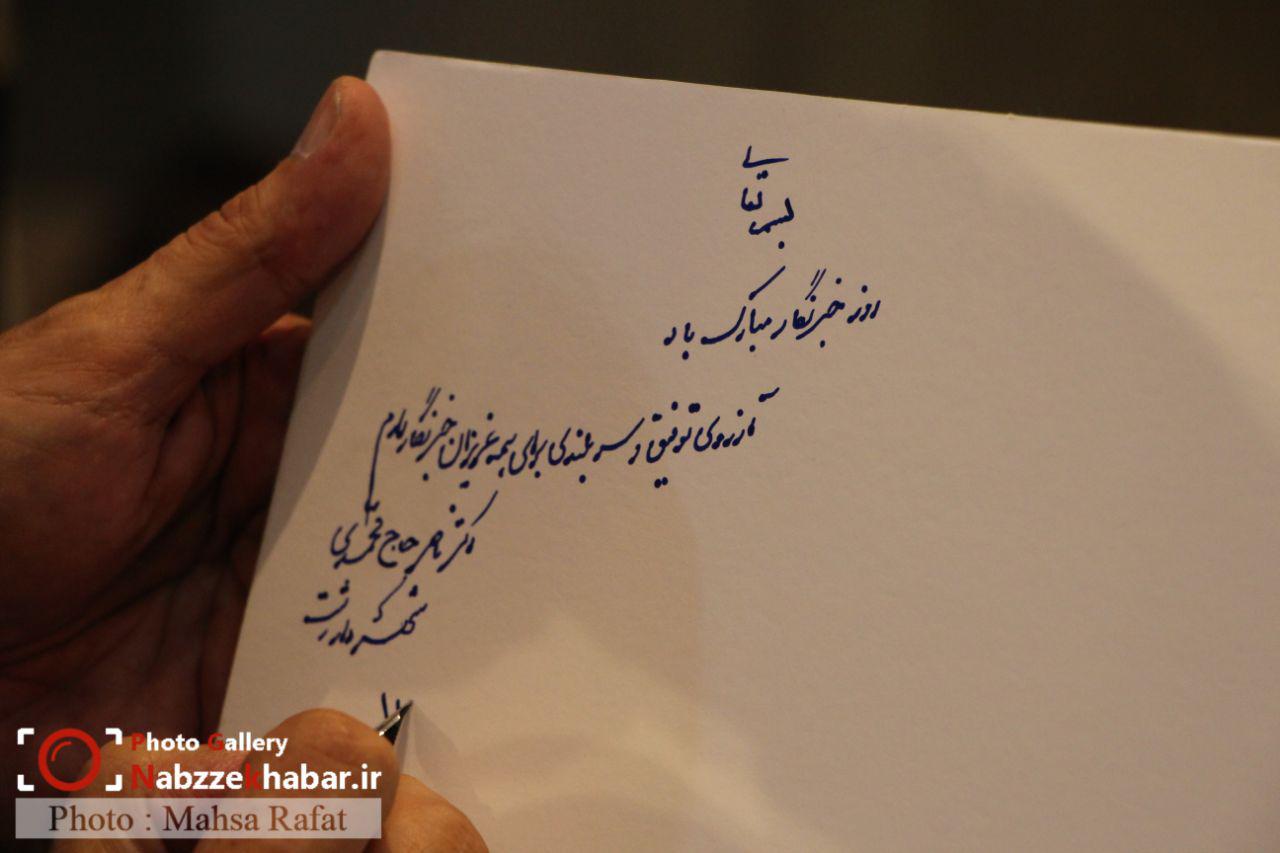 بسمه تعالی
روز خبرنگار مبارک باد
آرزوی توفیق و سربلندی برای همه عزیزان خبرنگار دارم
دکتر ناصر حاج محمدی
شهردار رشت
Photo Gallery
Nabzzekhabar.ir
Photo : Mahsa Rafat